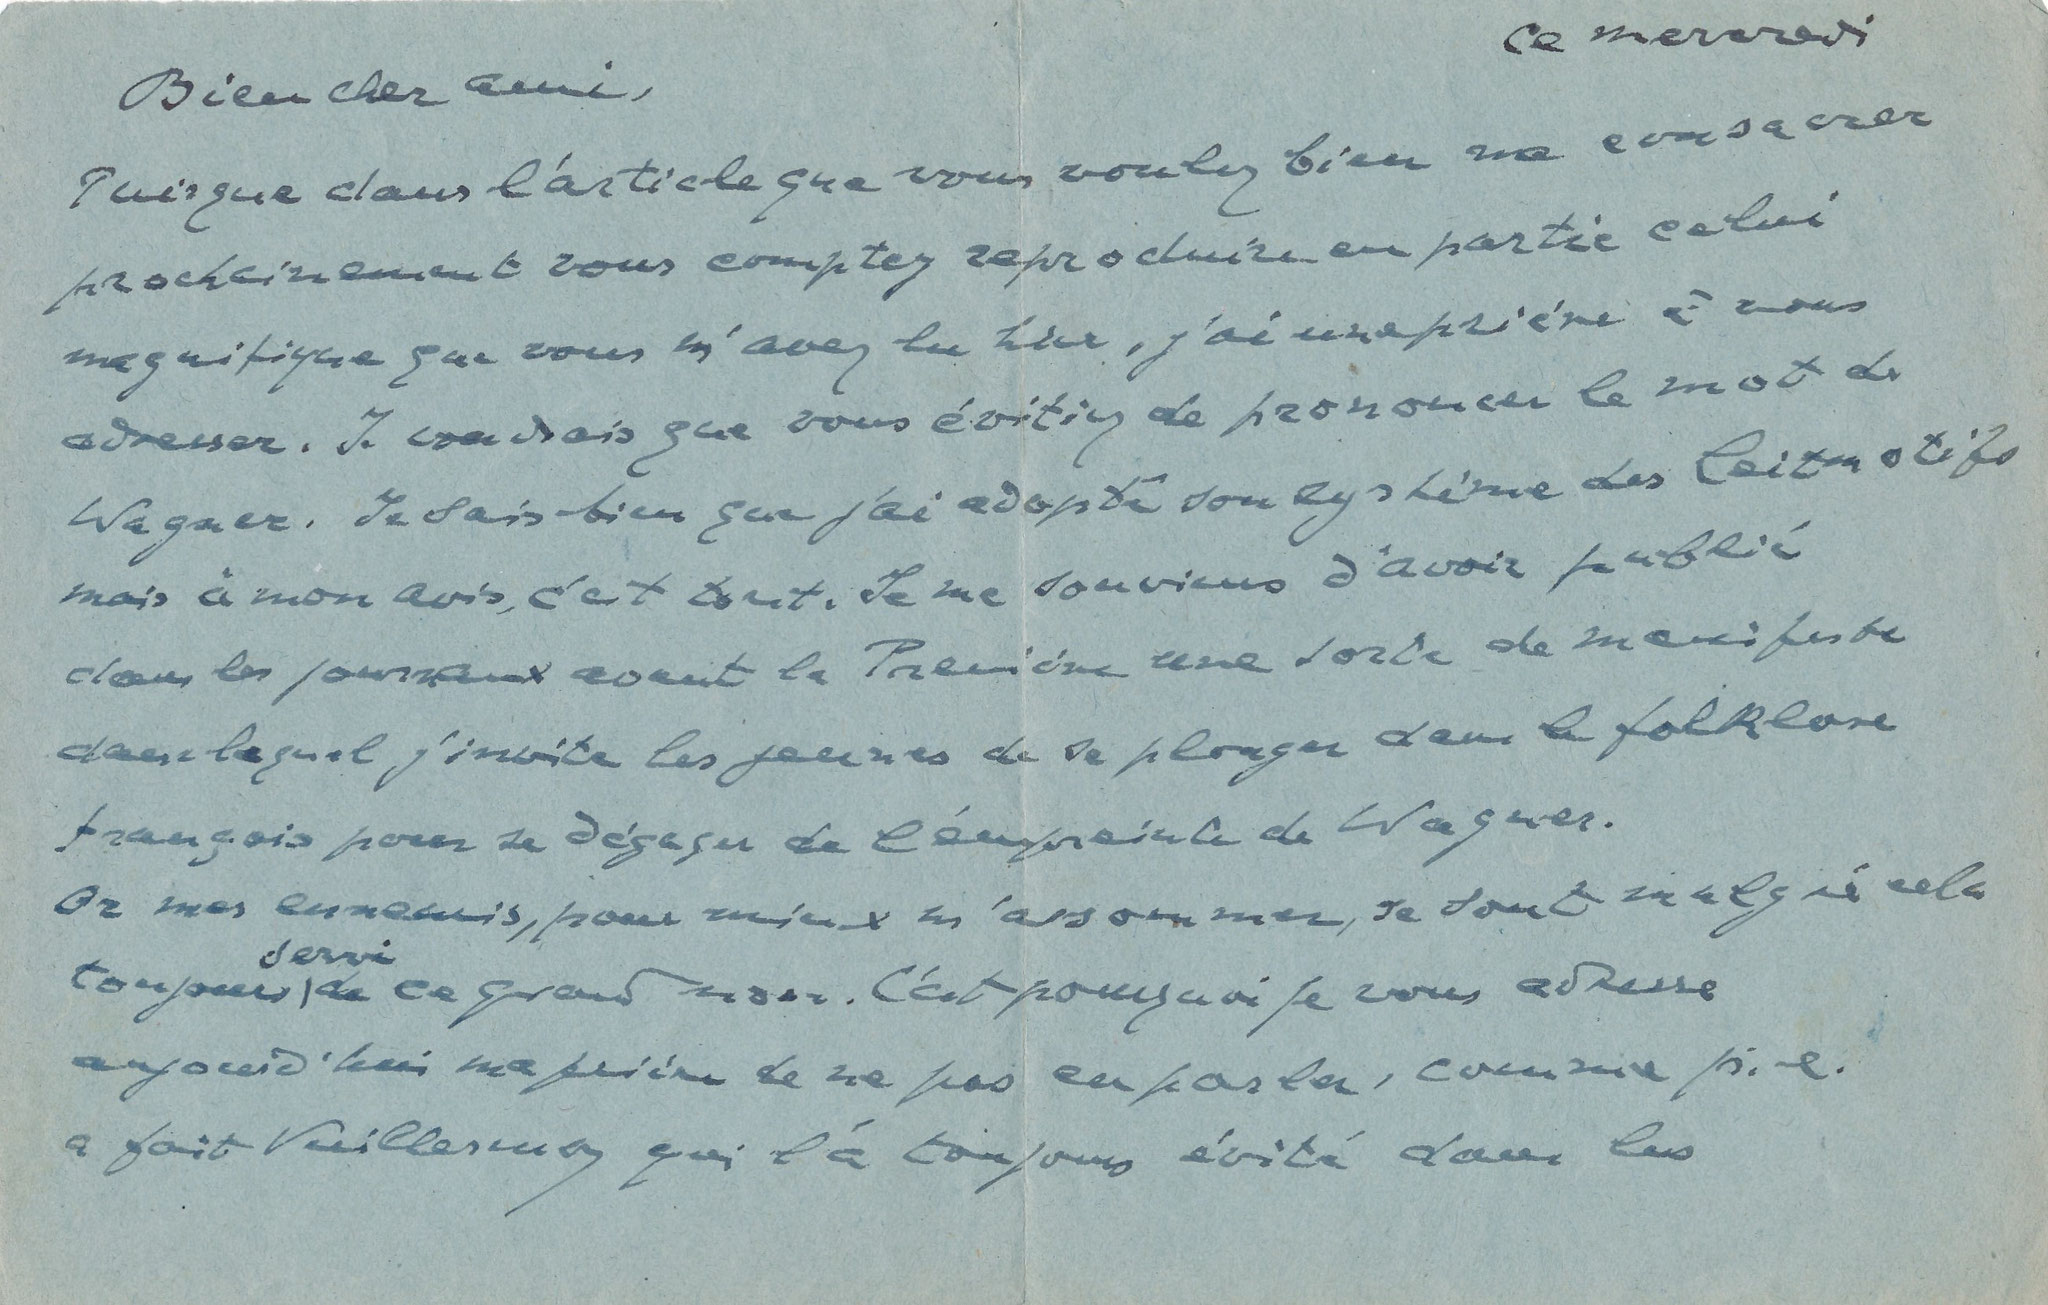 ce mercredi
Bien cher ami,
Puisque dans l'article que vous voulez bien me consacrer
prochainement vous comptez reproduire en partie celui
magnifique que vous m'avez lu hier, j'ai une prière à vous
adresser. Je voudrais que vous évitiez de prononcer le mot de
Wagner. Je sais bien que j'ai adopté son système des Leitmotifs
mais à mon avis, c'est tout. Je me souviens d'avoir publié
dans les journaux avant la Première une sorte de manifeste
dans lequel j'invite les jeunes de se plonger dans le folklore
français pour se dégager de l'empreinte de Wagner.
Or mes ennemis, pour mieux m'assommer, se sont malgré cela
toujours servi de ce grand nom. C'est pourquoi je vous adresse
aujourd'hui ma prière de ne pas en parler, comme p. e.
a fait Vuillermoz qui l'a toujours évité dans les